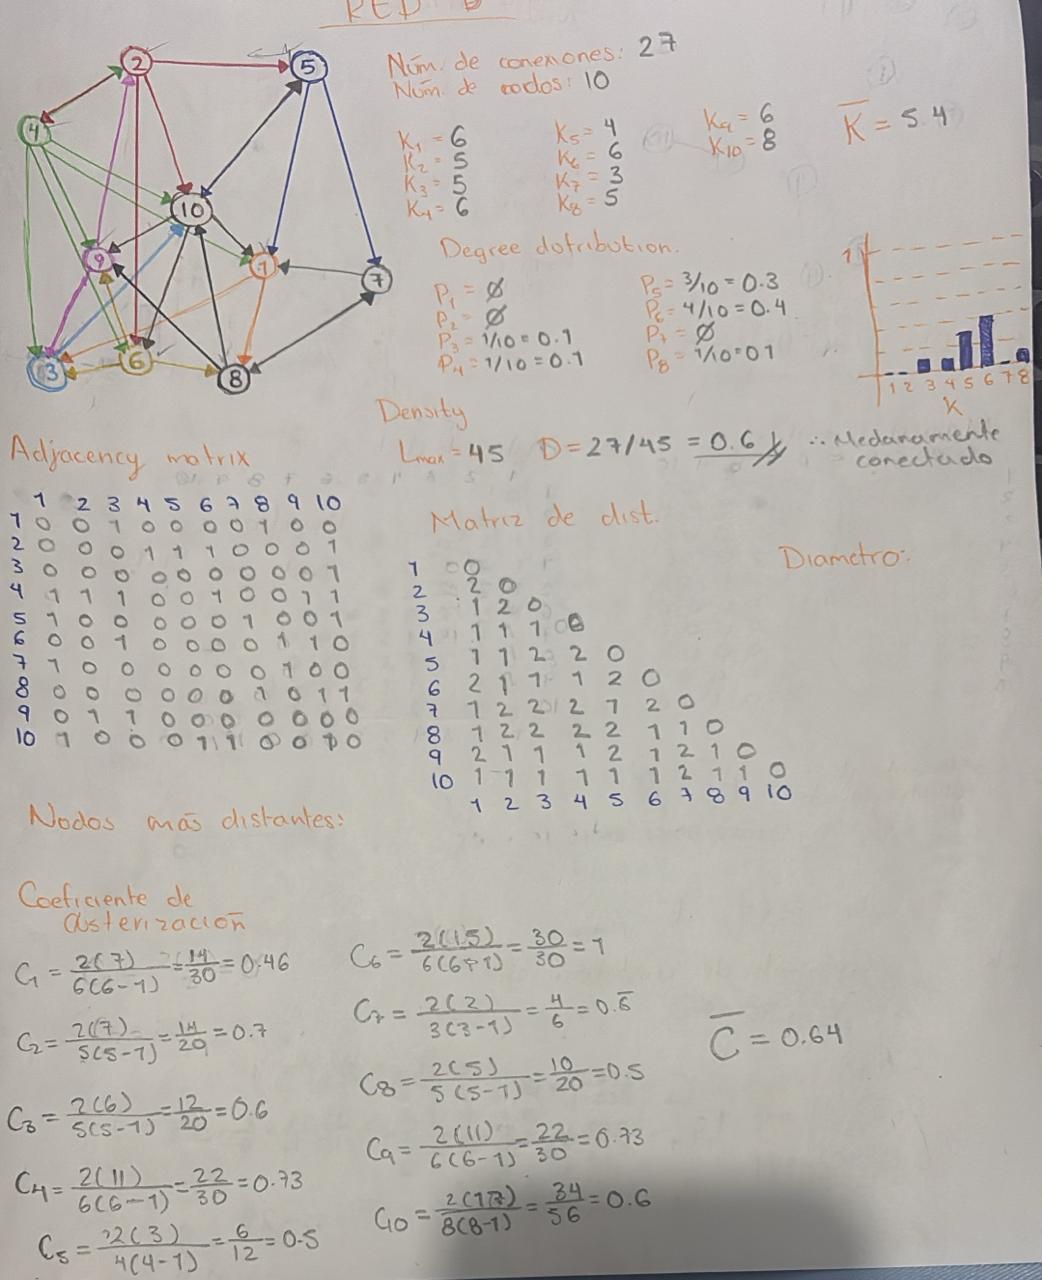 RED B
2
5
4
10
9
1
7
3
6
8
Núm. de conexiones: 27
Núm. de nodos: 10
K1 = 6
K2 = 5
K3 = 5
K4 = 6
K5 = 4
K6 = 6
K7 = 3
K8 = 5
K9 = 6
K10 = 8
K̅ = 5.4
Degree dotribution.
P1 = ∅
P2 = ∅
P3 = 1/10 = 0.1
P4 = 1/10 = 0.1
P5 = 3/10 = 0.3
P6 = 4/10 = 0.4
P7 = ∅
P8 = 1/10 = 0.1
1
1 2 3 4 5 6 7 8
K
Density
Lmax = 45 D = 27/45 = 0.6 ∴ Medanamente
conectado
Adjacency matrix
1 2 3 4 5 6 7 8 9 10
1 0 0 1 0 0 0 0 1 0 0
2 0 0 0 1 1 1 0 0 0 1
3 0 0 0 0 0 0 0 0 0 1
4 1 1 1 0 0 1 0 0 1 1
5 1 0 0 0 0 0 1 0 0 1
6 0 0 1 0 0 0 0 1 1 0
7 1 0 0 0 0 0 0 1 0 0
8 0 0 0 0 0 0 1 0 1 1
9 0 1 1 0 0 0 0 0 0 0
10 1 0 0 0 1 1 0 0 1 0
Matriz de dist.
1 0
2 2 0
3 1 2 0
4 1 1 1 0
5 1 1 2 2 0
6 2 1 1 1 2 0
7 1 2 2 2 1 2 0
8 1 2 2 2 2 1 1 0
9 2 1 1 1 2 1 2 1 0
10 1 1 1 1 1 1 2 1 1 0
1 2 3 4 5 6 7 8 9 10
Diametro:
Nodos más distantes:
Coeficiente de
clusterización
C1 = 2(7)/6(6-1) = 14/30 = 0.46
C2 = 2(7)/5(5-1) = 14/20 = 0.7
C3 = 2(6)/5(5-1) = 12/20 = 0.6
C4 = 2(11)/6(6-1) = 22/30 = 0.73
C5 = 2(3)/4(4-1) = 6/12 = 0.5
C6 = 2(15)/6(6-1) = 30/30 = 1
C7 = 2(2)/3(3-1) = 4/6 = 0.6̅
C8 = 2(5)/5(5-1) = 10/20 = 0.5
C9 = 2(11)/6(6-1) = 22/30 = 0.73
C10 = 2(17)/8(8-1) = 34/56 = 0.6
C̅ = 0.64